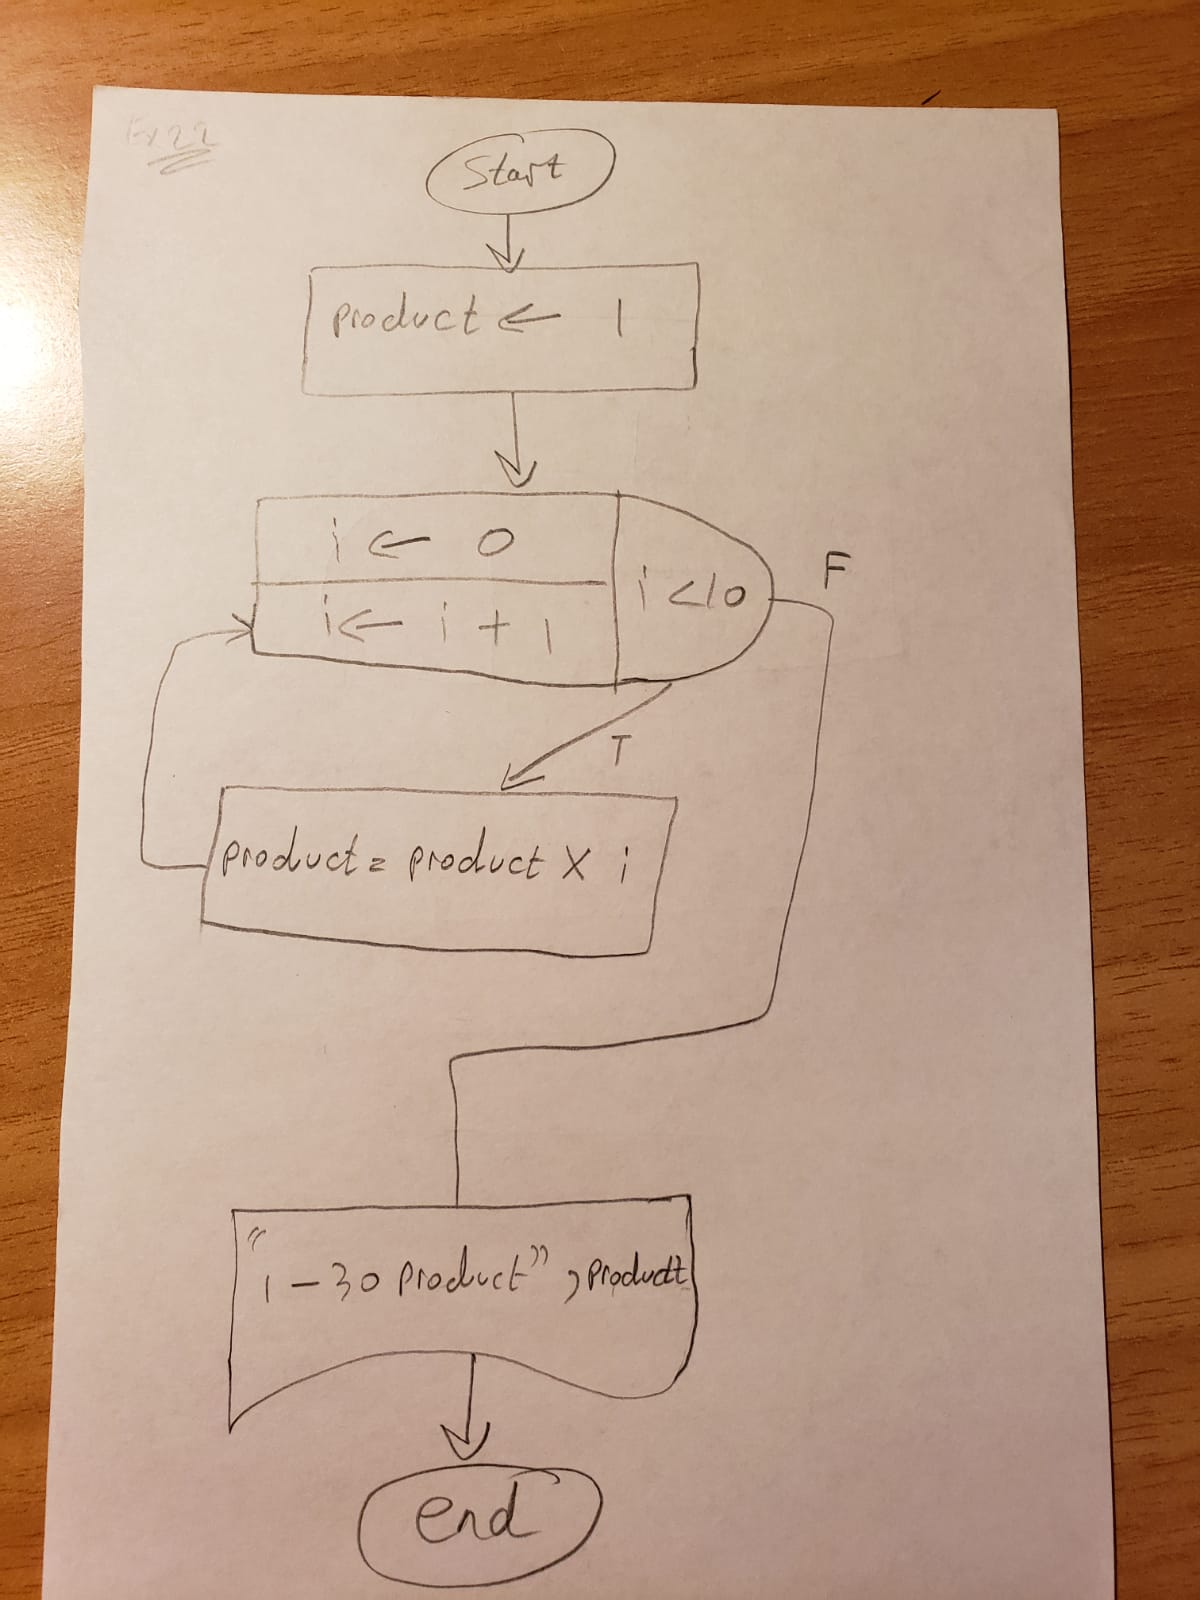 Ex 22
Start
product ← 1
i ← 0
i ← i + 1
i < 10
F
T
product = product X i
"1 - 30 product", product
end